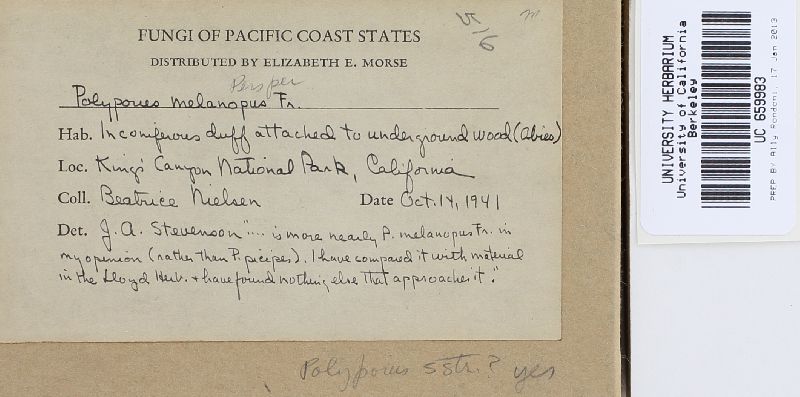 FUNGI OF PACIFIC COAST STATES
DISTRIBUTED BY ELIZABETH E. MORSE
Polyporus melanopus Fr.
Hab. In coniferous duff attached to underground wood (Abies)
Loc. King's Canyon National Park, California
Coll. Beatrice Nielsen Date Oct. 14, 1941
Det. J. A. Stevenson ".... is more nearly P. melanopus Fr. in
my opinion (rather than P. picipes). I have compared it with material
in the Lloyd Herb. + have found nothing else that approaches it."
Polyporus s str.? yes
UNIVERSITY HERBARIUM
University of California
Berkeley
UC 659983
PREP BY Ally Rondoni, 17 Jan 2013